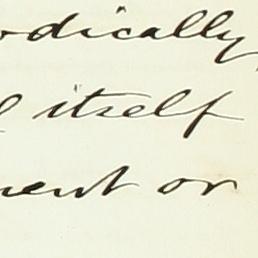 odically,
itself
ment or